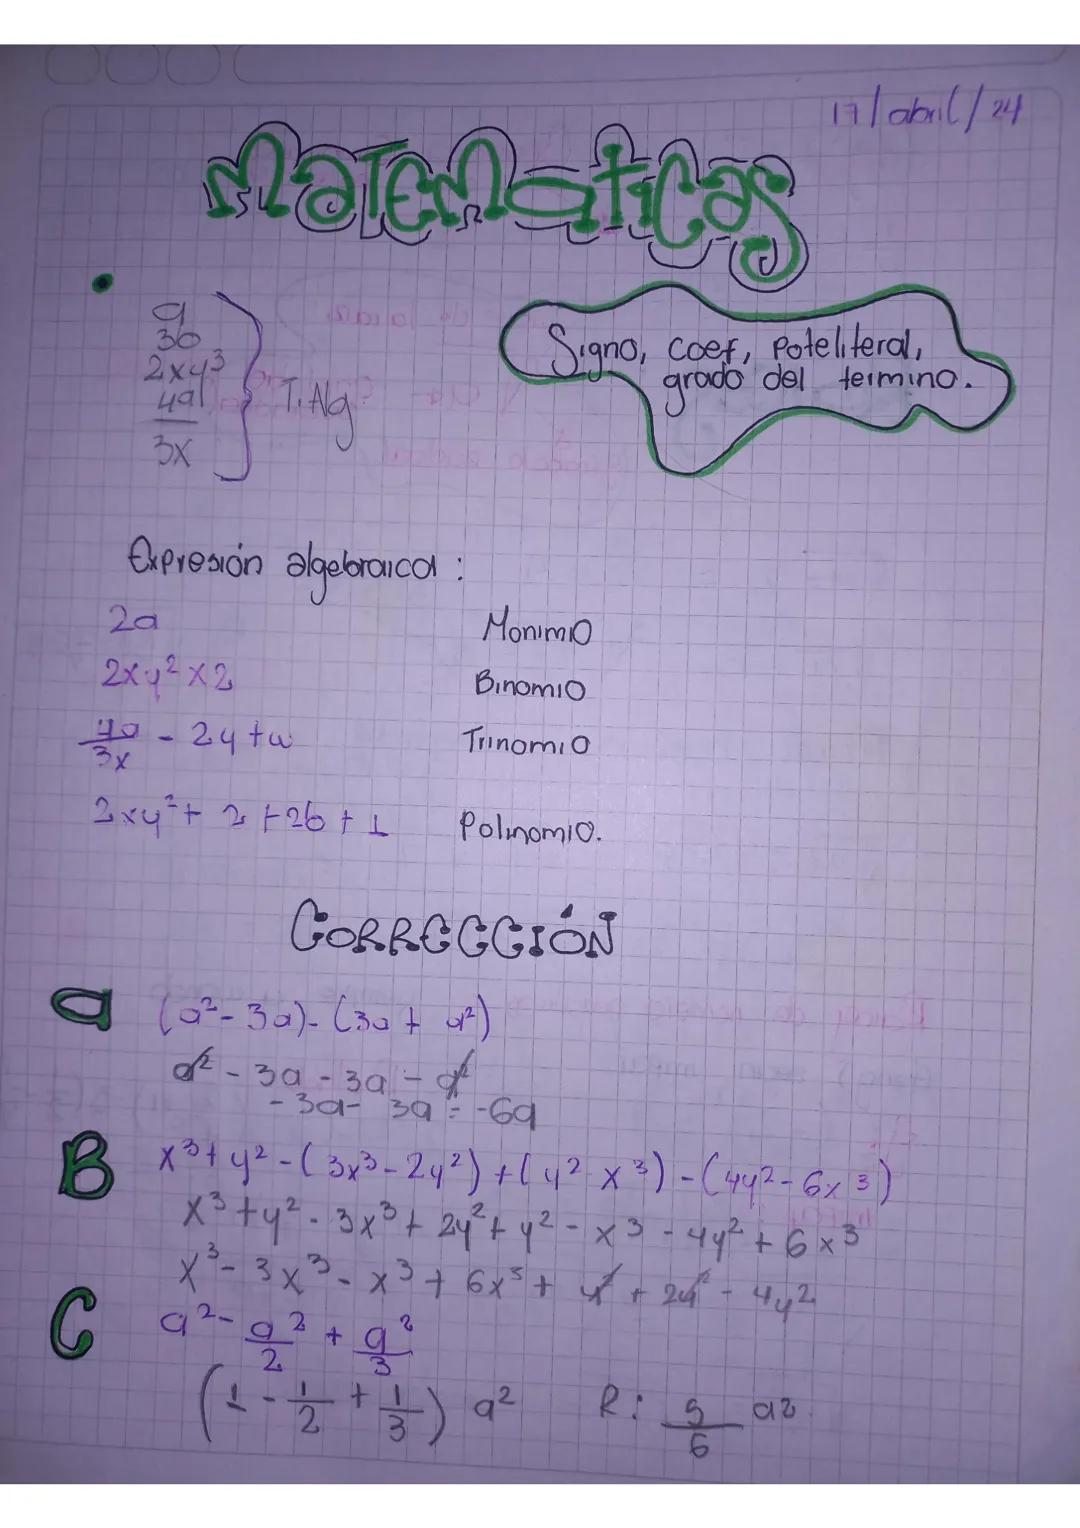 17/abril/24
Matemáticas
a
3b
2xy³
4a
3x
T. Alg
Signo, coef, poteliteral,
grado del termino.
Expresión algebraica:
2a Monimio
2xy² x 2 Binomio
4a/3x - 2y + w Trinomio
2xy² + 2 + 2b + 1 Polinomio.
CORRECCIÓN
a (a² - 3a) - (3a + a²)
a² - 3a - 3a - a²
- 3a - 3a = -6a
B x³ + y² - (3x³ - 2y²) + (y² - x³) - (4y² - 6x³)
x³ + y² - 3x³ + 2y² + y² - x³ - 4y² + 6x³
x³ - 3x³ - x³ + 6x³ + y² + 2y² - 4y²
C a² - a²/2 + a²/3
(1 - 1/2 + 1/3) a² R: 5/6 a²